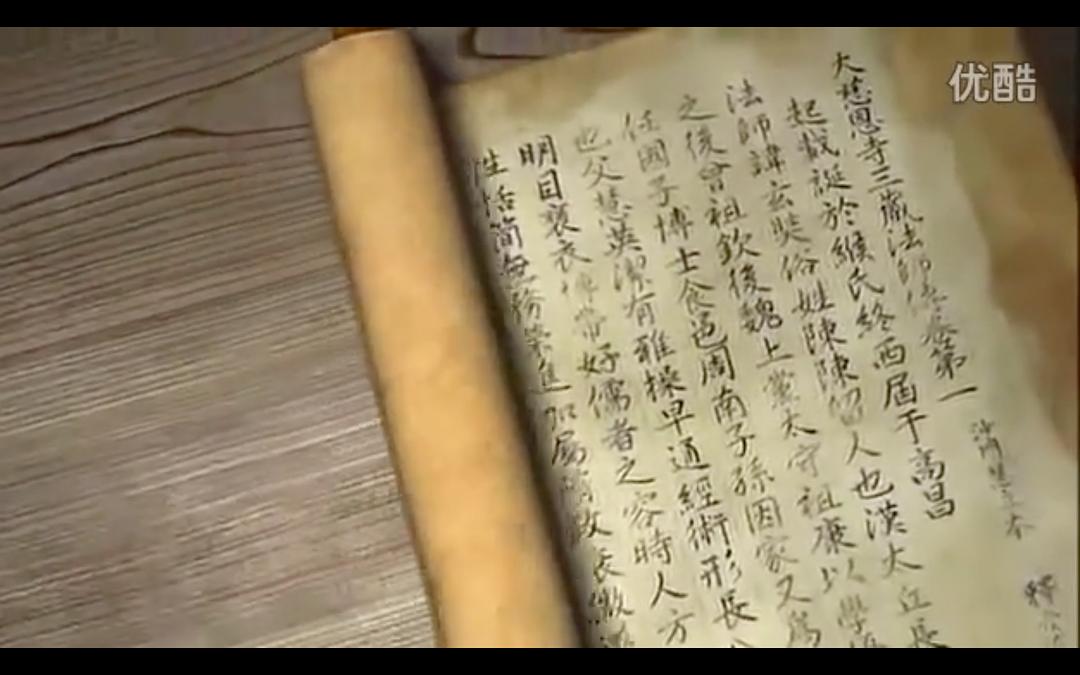 优酷
大慈恩寺三藏法師傳卷第一
沙門慧立本
釋
起載誕於緱氏終西届于高昌
法師諱玄奘俗姓陳陳留人也漢太丘長
之後曾祖欽後魏上黨太守祖康以學
任國子博士食邑周南子孫因家又爲
也父慧英潔有雅操早通經術形長
明目褒衣博帶好儒者之容時人方
性恬簡無務榮進加屬隋政衰微